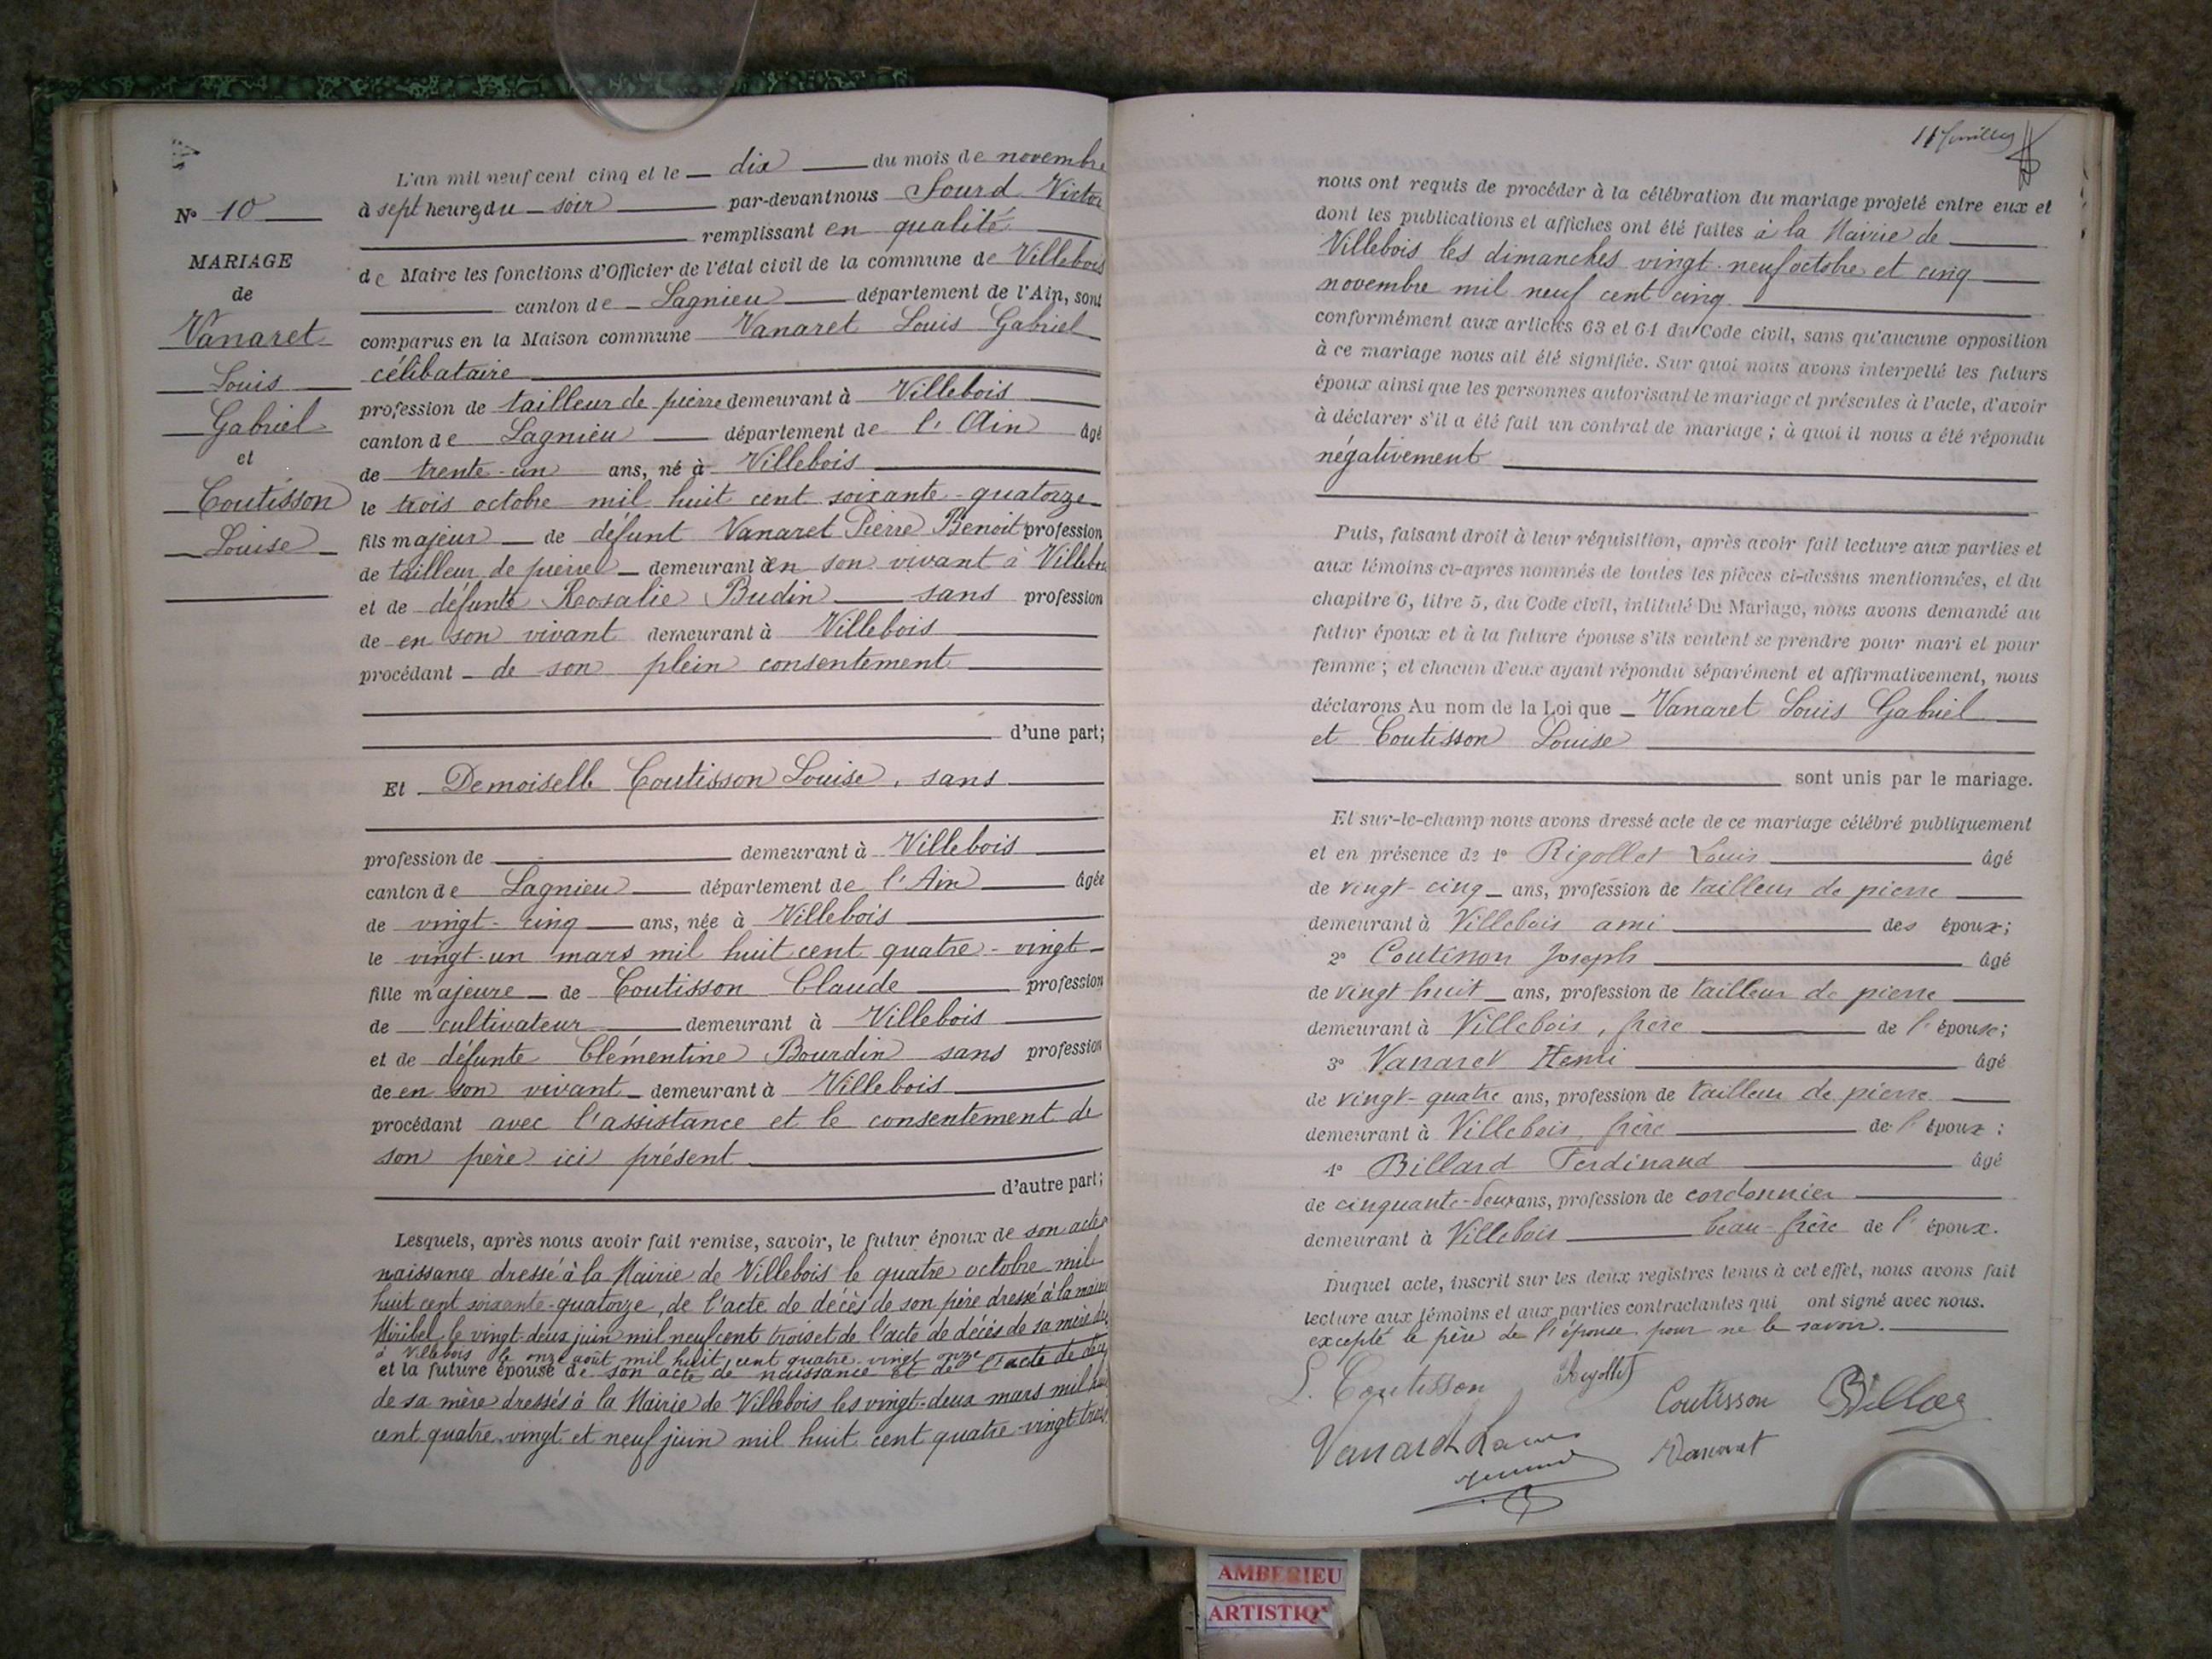 L'an mil neuf cent cinq et le dix du mois de novembre
N° 10
à sept heures du soir par-devant nous Sourd Victor
remplissant en qualité
MARIAGE
de Maire les fonctions d'Officier de l'état civil de la commune de Villebois
de
canton de Lagnieu département de l'Ain, sont
Vanaret
comparus en la Maison commune Vanaret Louis Gabriel
Louis
célibataire
profession de tailleur de pierre demeurant à Villebois
Gabriel
canton de Lagnieu département de l'Ain âgé
et
de trente-un ans, né à Villebois
Coutisson
le trois octobre mil huit cent soixante-quatorze
Louise
fils majeur de défunt Vanaret Pierre Benoit profession
de tailleur de pierre demeurant en son vivant à Villebois
et de défunte Rosalie Budin sans profession
de en son vivant demeurant à Villebois
procédant de son plein consentement
d'une part;
Et Demoiselle Coutisson Louise, sans
profession de demeurant à Villebois
canton de Lagnieu département de l'Ain âgée
de vingt-cinq ans, née à Villebois
le vingt-un mars mil huit cent quatre-vingt
fille majeure de Coutisson Claude profession
de cultivateur demeurant à Villebois
et de défunte Clémentine Bourdin sans profession
de en son vivant demeurant à Villebois
procédant avec l'assistance et le consentement de
son père ici présent
d'autre part;
Lesquels, après nous avoir fait remise, savoir, le futur époux de son acte
naissance dressé à la Mairie de Villebois le quatre octobre mil
huit cent soixante-quatorze, de l'acte de décès de son père dressé à la mairie
Miribel le vingt-deux juin mil neuf cent trois et de l'acte de décès de sa mère
à Villebois le onze août mil huit cent quatre-vingt onze
et la future épouse de son acte de naissance et de l'acte de décès
de sa mère dressés à la Mairie de Villebois les vingt-deux mars mil huit
cent quatre-vingt et neuf juin mil huit cent quatre-vingt-trois
nous ont requis de procéder à la célébration du mariage projeté entre eux et
dont les publications et affiches ont été faites à la Mairie de
Villebois les dimanches vingt-neuf octobre et cinq
novembre mil neuf cent cinq
conformément aux articles 63 et 64 du Code civil, sans qu'aucune opposition
à ce mariage nous ait été signifiée. Sur quoi nous avons interpellé les futurs
époux ainsi que les personnes autorisant le mariage et présentes à l'acte, d'avoir
à déclarer s'il a été fait un contrat de mariage; à quoi il nous a été répondu
négativement
Puis, faisant droit à leur réquisition, après avoir fait lecture aux parties et
aux témoins ci-après nommés de toutes les pièces ci-dessus mentionnées, et du
chapitre 6, titre 5, du Code civil, intitulé Du Mariage, nous avons demandé au
futur époux et à la future épouse s'ils veulent se prendre pour mari et pour
femme; et chacun d'eux ayant répondu séparément et affirmativement, nous
déclarons Au nom de la Loi que Vanaret Louis Gabriel
et Coutisson Louise
sont unis par le mariage.
Et sur-le-champ nous avons dressé acte de ce mariage célébré publiquement
et en présence de 1° Rigollet Louis âgé
de vingt-cinq ans, profession de tailleur de pierre
demeurant à Villebois ami des époux;
2° Coutisson Joseph âgé
de vingt huit ans, profession de tailleur de pierre
demeurant à Villebois, frère de l'épouse;
3° Vanaret Henri âgé
de vingt-quatre ans, profession de tailleur de pierre
demeurant à Villebois, frère de l'époux;
4° Billard Ferdinand âgé
de cinquante-deux ans, profession de cordonnier
demeurant à Villebois beau-frère de l'époux.
Duquel acte, inscrit sur les deux registres tenus à cet effet, nous avons fait
lecture aux témoins et aux parties contractantes qui ont signé avec nous.
excepté le père de l'épouse pour ne le savoir.
L. Coutisson Rigollet
Coutisson
Vanaret
AMBERIEU
ARTISTIQ